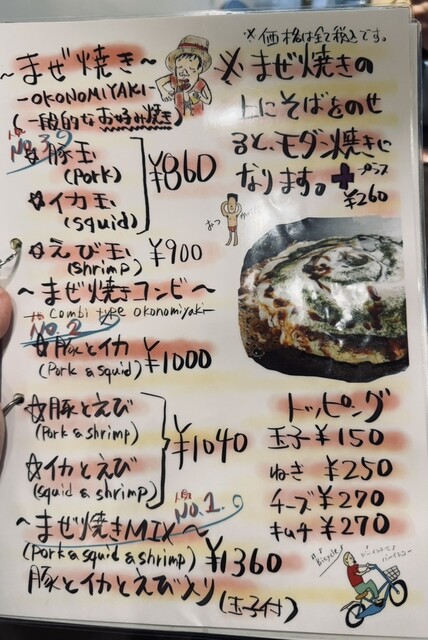 ※価格は全て税込です。
~まぜ焼き~
-OKONOMIYAKI-
(一般的なお好み焼き)
人気
No.3
☆豚玉
(pork)
☆イカ玉
(squid)
¥860
☆えび玉 ¥900
(shrimp)
~まぜ焼きコンビ~
Combi type okonomiyaki
No.2
☆豚とイカ ¥1000
(Pork & squid)
☆豚とえび
(Pork & shrimp)
☆イカとえび
(squid & shrimp)
¥1040
人気
No.1
~まぜ焼きMIX~
(Pork & squid & shrimp) ¥1360
豚とイカとえび入り(玉子付)
※まぜ焼きの
上にそばをのせ
ると、モダン焼きに
なります。+プラス
¥260
トッピング
玉子 ¥150
ねぎ ¥250
チーズ ¥270
キムチ ¥270
Bicycle